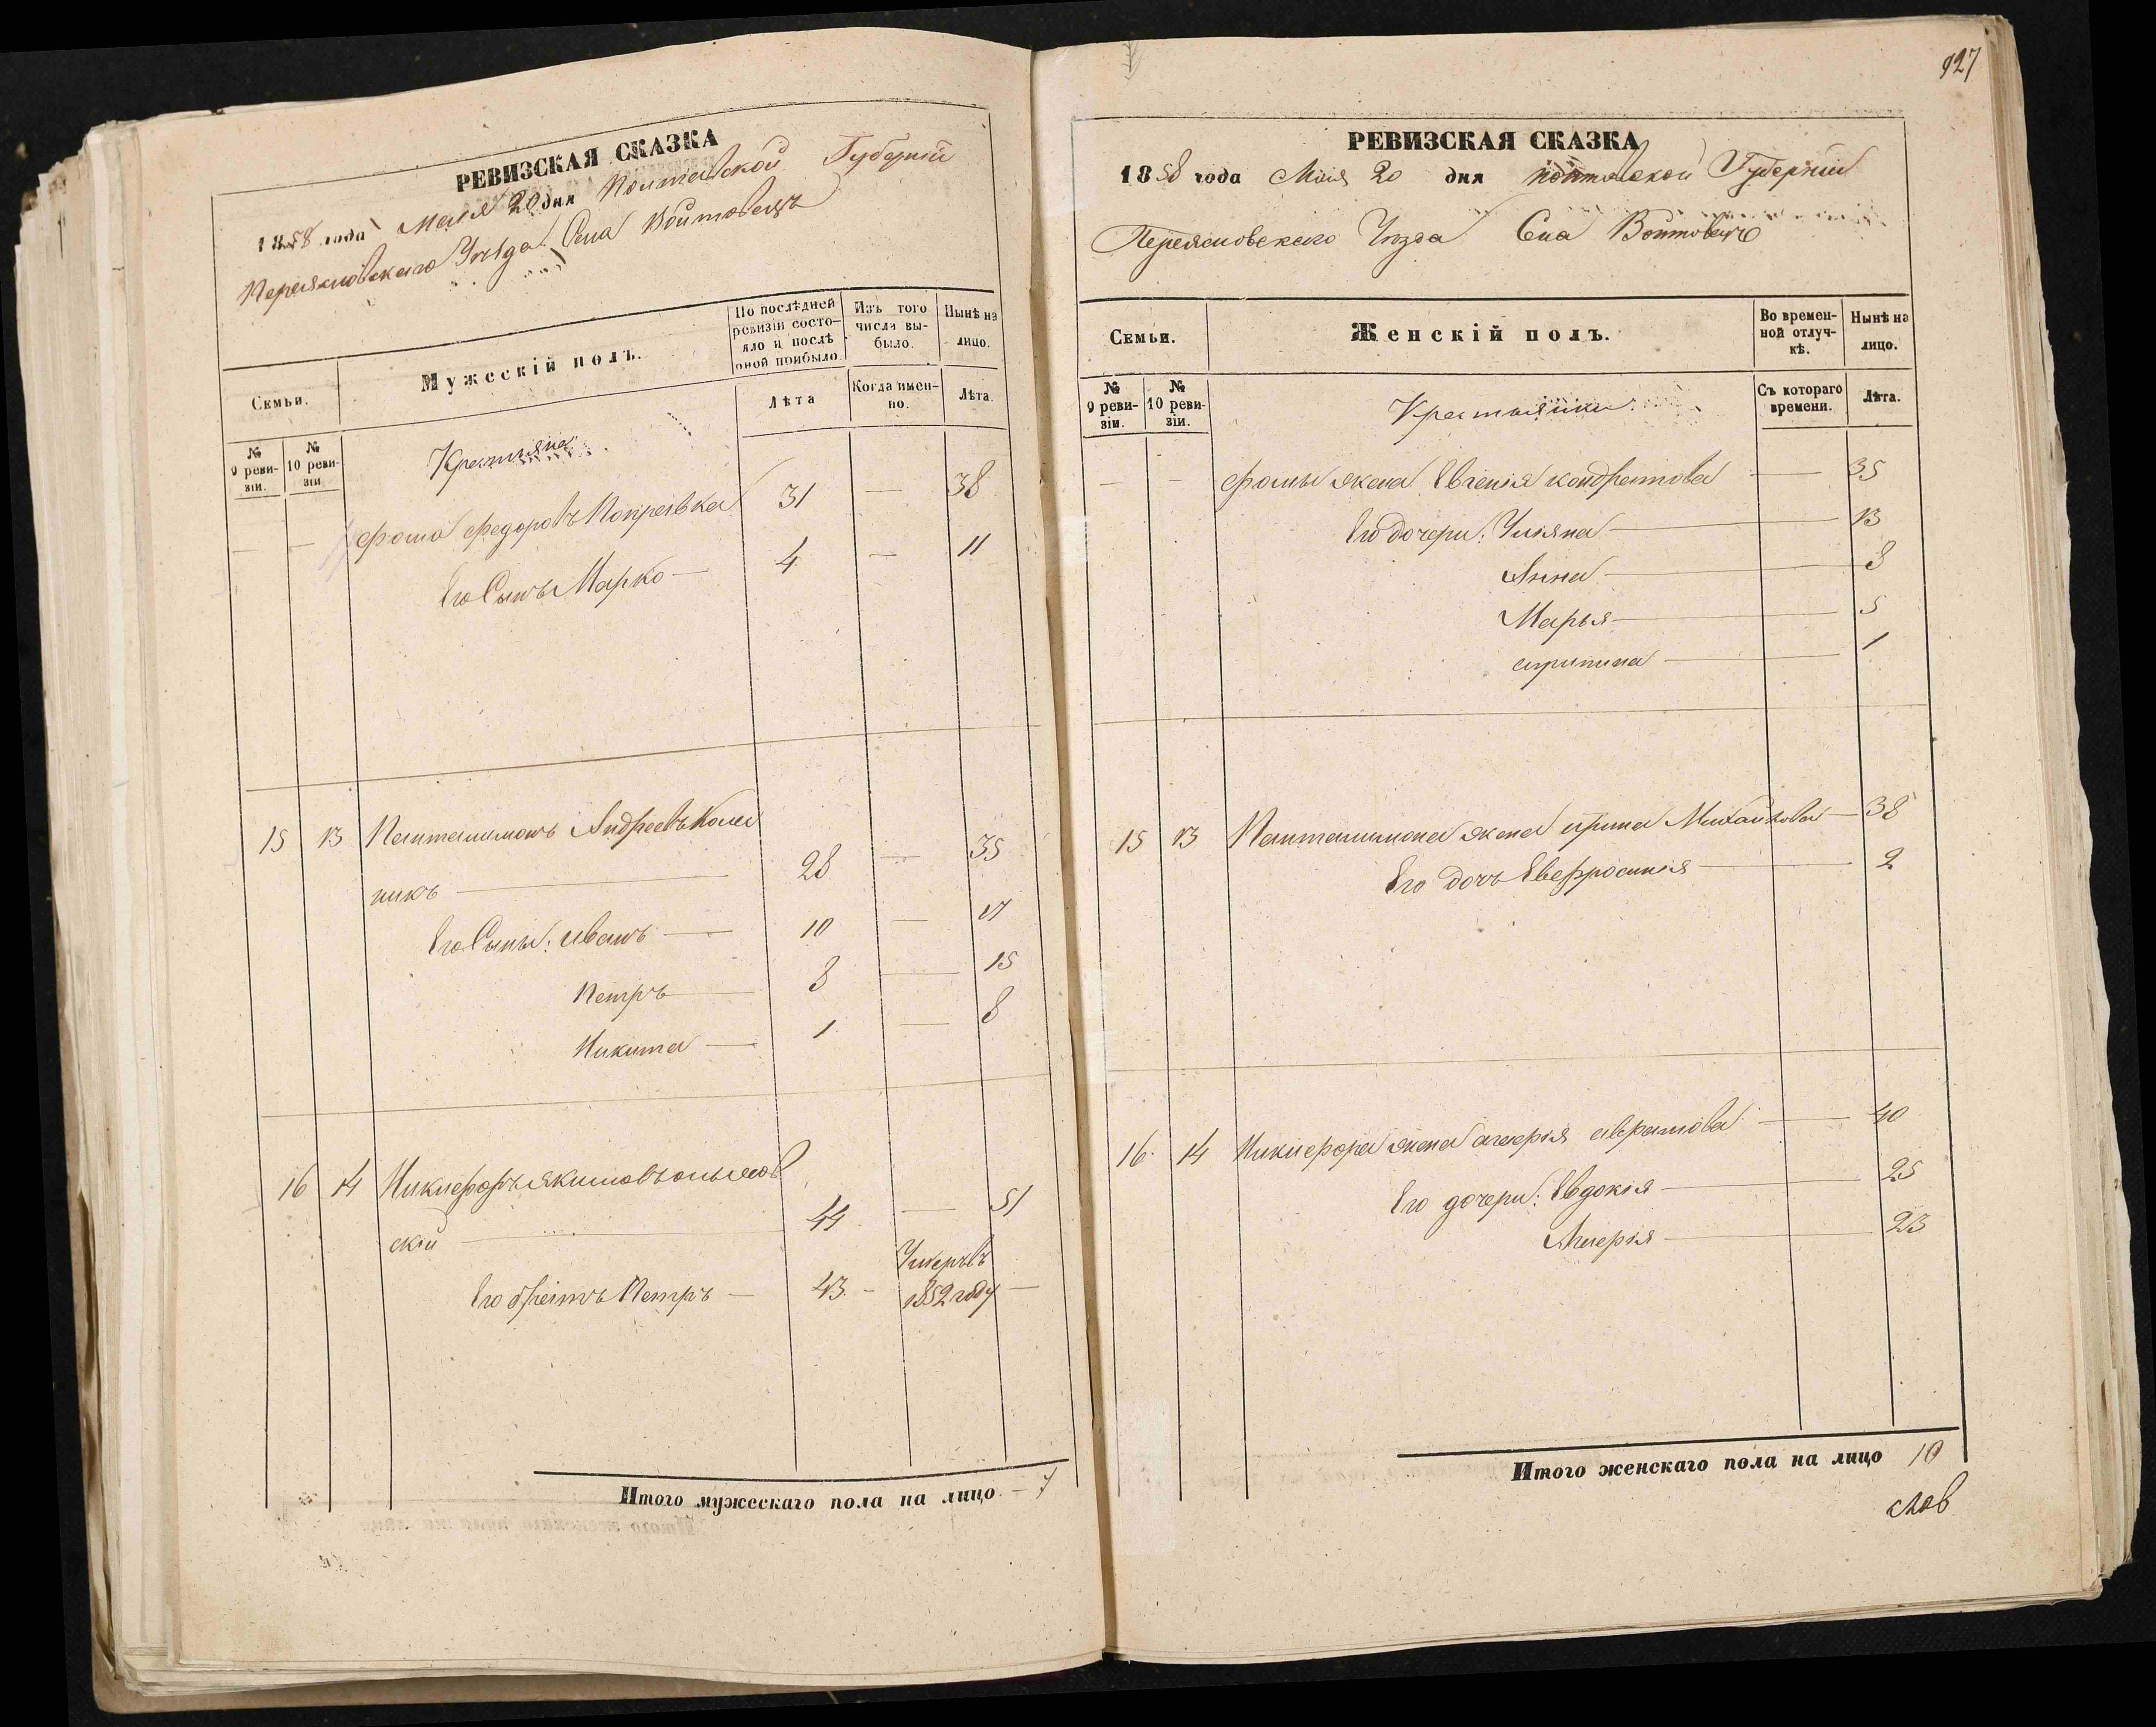 РЕВИЗСКАЯ СКАЗКА
1858 года Мая 20 дня Полтавской Губерніи
Переяславскаго Уѣзда Села Войтовецъ
Семьи.
Мужескій полъ.
По послѣдней ревизіи состояло и послѣ оной прибыло.
Изъ того числа выбыло.
Нынѣ на лицо.
№ 9 ревизіи.
№ 10 ревизіи
Крестьяне
Лѣта
Когда именно.
Лѣта.
— — Фома Федоровъ 31 — 38
Его Сынъ Марко — 4 — 11
15 13 Пантелимонъ Андреевъ Колес
никъ — 28 — 35
Его Сыны: Иванъ — 10 — 17
Петръ — 8 — 15
Никита — 1 — 8
16 14 Никифоръ Якимовъ
скій — 44 — 51
Его братъ Петръ — 43 — Умеръ въ 1852 году —
Итого мужескаго пола на лицо — 7
927
РЕВИЗСКАЯ СКАЗКА
1858 года Мая 20 дня Полтавской Губерніи
Переяславскаго Уѣзда Села Войтовецъ
Семьи.
Женскій полъ.
Во временной отлучкѣ.
Нынѣ на лицо.
№ 9 ревизіи.
№ 10 ревизіи.
Крестьянки
Съ котораго времени.
Лѣта.
— — Фомы жена Евгенія Кондратова — 35
Его дочери: Уліяна — 13
Анна — 8
Марья — 5
агрипина — 1
15 13 Пантелимона жена ирина Михайлова — 38
Его дочь Евфросинія — 2
16 14 Никифора жена аврамова — 40
Его дочери: Евдокія — 25
— 23
Итого женскаго пола на лицо 10